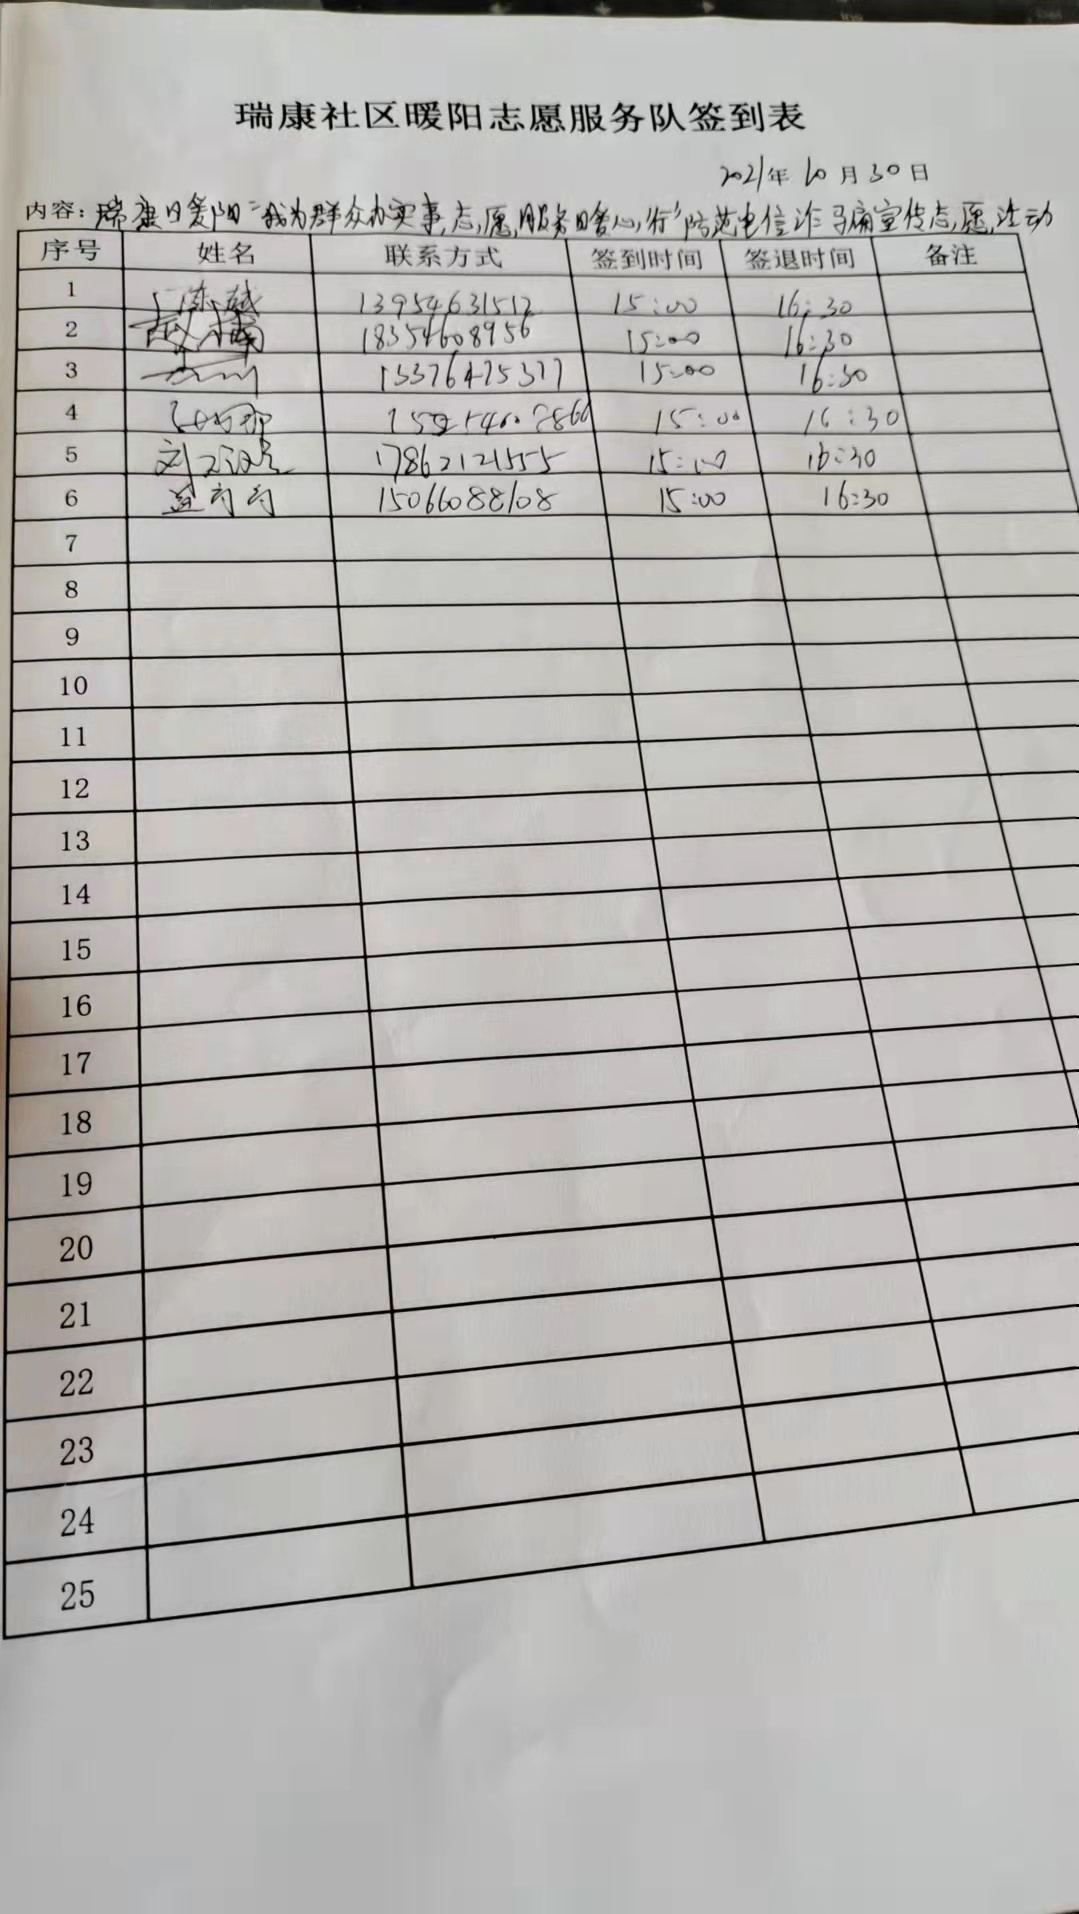 瑞康社区暖阳志愿服务队签到表
2021年10月30日
内容：瑞康暖阳"我为群众办实事,志愿服务暖心行"防范电信诈骗宣传志愿活动
序号 姓名 联系方式 签到时间 签退时间 备注
1 13954631512 15:00 16:30
2 18354608956 15:00 16:30
3 15:00 16:30
4 15:00 16:30
5 刘 17862121555 15:00 16:30
6 15066088108 15:00 16:30
7
8
9
10
11
12
13
14
15
16
17
18
19
20
21
22
23
24
25